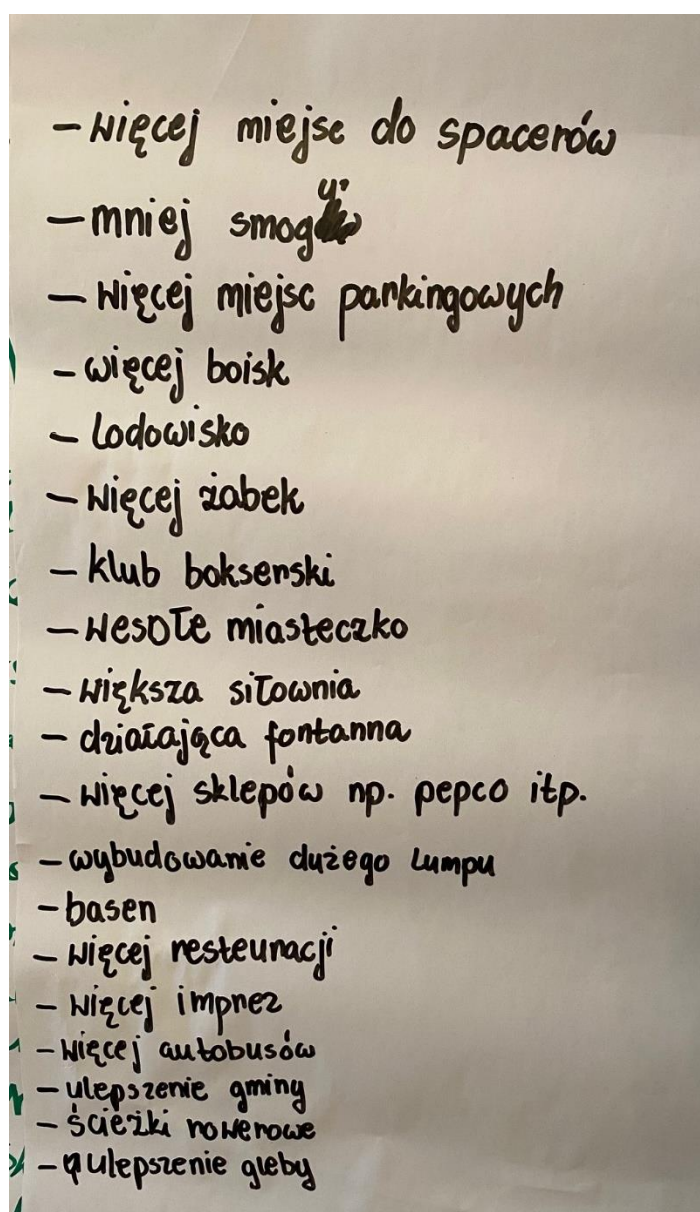 - więcej miejsc do spacerów
- mniej smogu
- więcej miejsc parkingowych
- więcej boisk
- lodowisko
- więcej żabek
- klub bokserski
- wesołe miasteczko
- większa siłownia
- działająca fontanna
- więcej sklepów np. pepco itp.
- wybudowanie dużego lumpu
- basen
- więcej resteuracji
- więcej imprez
- więcej autobusów
- ulepszenie gminy
- ścieżki rowerowe
- ulepszenie gleby